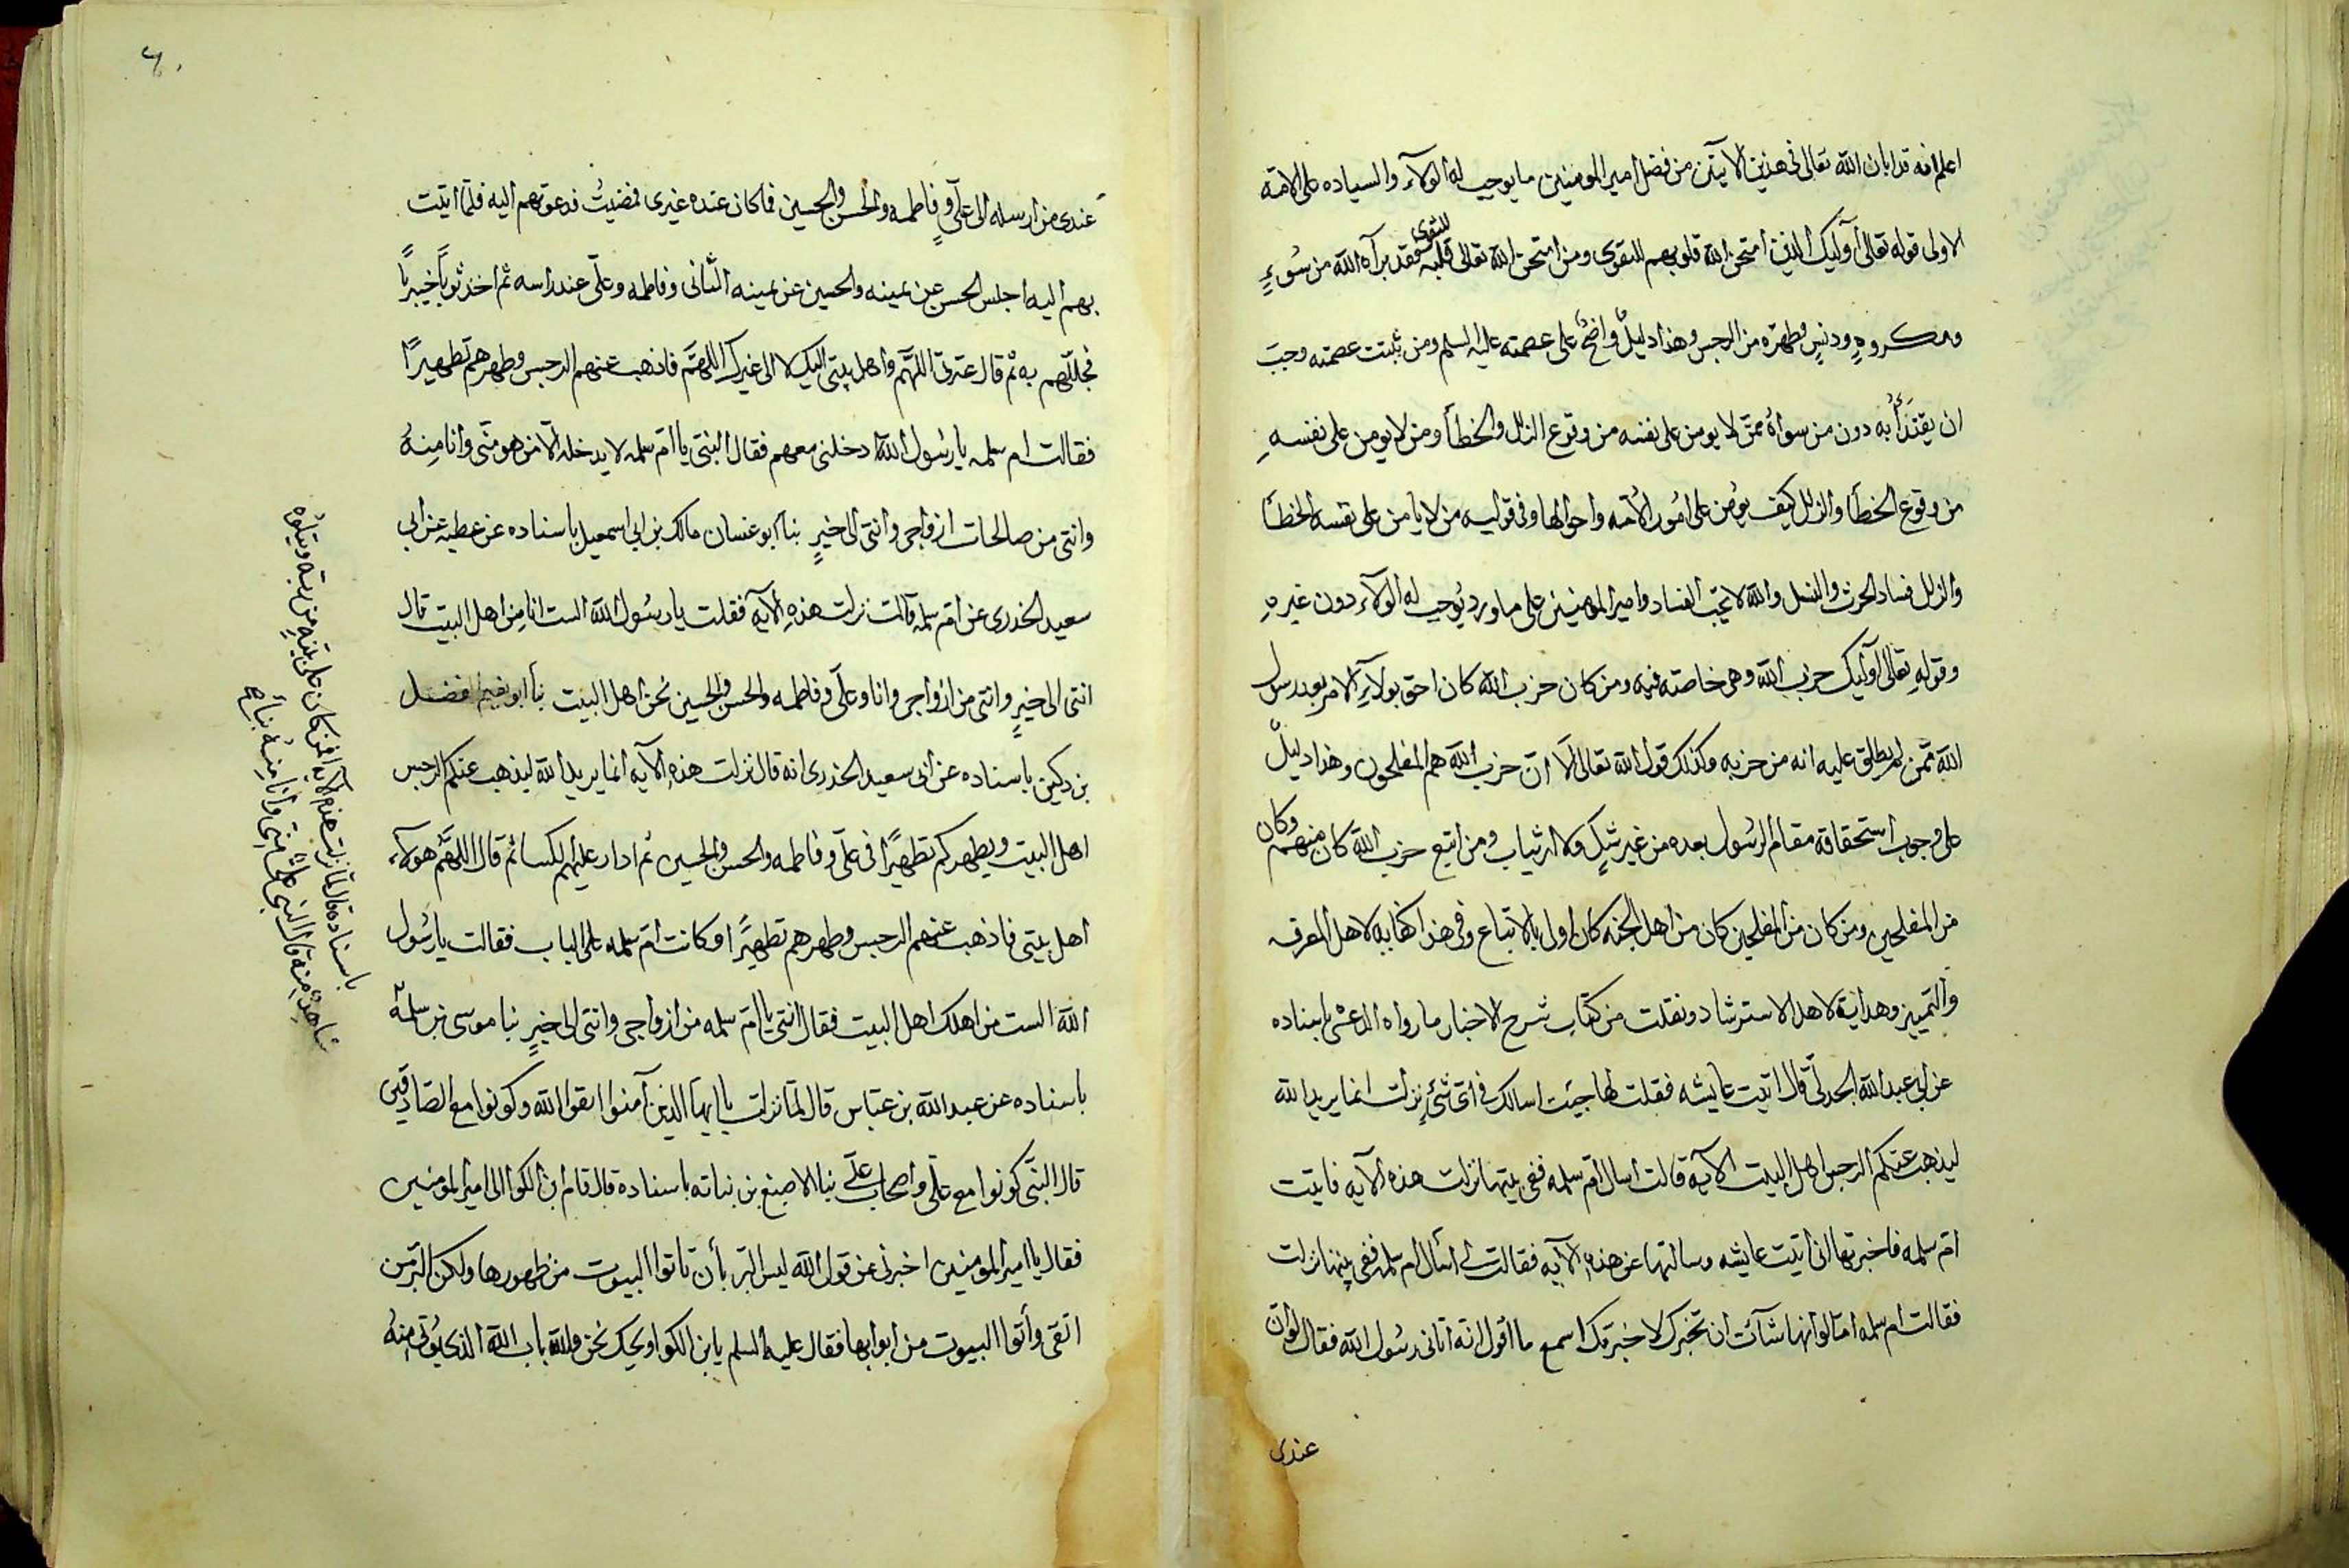 اعلم انه قد ابان الله تعالى فى هذين الآيتين من فضل امير المومنين ما يوجب له الولآء والسياده على الامة
الاولى قوله تعالى أوليك الذين امتحن الله قلوبهم للتقوى ومن امتحن الله تعالى قلبه للتقوى فقد برآه الله من سُوءٍ
ومكروهٍ ودنسٍ وطهره من الرجس وهذا دليلٌ واضحٌ على عصمته عليه السلم ومن ثبتت عصمته وجبَ
ان يقتدأ به دون من سواهُ ممّن لا يومن على نفسه من وقوع الزلل والخطأ ومن لا يومن على نفسهِ
من وقوع الخطأ والزلل كيف يومن على امُور الاُمّه واحوالها وفى توليه من لا يامن على نفسه الخطأ
والزلل فساد الحرث والنسل والله لا يحبّ الفساد وامير المومنين على ما ورد يُوجب له الولآء دون غيرهِ
وقولهِ تعالى أوليك حزب الله وهى خاصته فيه ومن كان حزب الله كان احق بولآءِ الامر بعد رسول
الله ممّن لم يطلق عليه انه من حزبه وكذلك قول الله تعالى ألَا انّ حزب الله هم المفلحون وهذا دليلٌ
على وجوب استحقاقه مقام الرسُول بعده من غير شكٍ ولا ارتياب ومن اتبع حزب الله كان منهم وكان
من المفلحين ومن كان من المفلحين كان من اهل الجنه كان اولى بالاتباع وفى هذا كفايه لاهل المعرفه
والتمييز وهداية لاهل الاسترشاد ونقلت من كتاب شرح الاخبار ما رواه الدغشى باسناده
عن ابى عبد الله الجدلّى قال اتيت عايشه فقلت لها جيت اسالك فى اىّ شئٍ نزلت انما يريد الله
ليذهب عنكم الرجس اهل البيت الآيه قالت اسال امّ سلمه ففى بيتها نزلت هذه الآيه فاتيت
امّ سلمه فاخبرتها انى اتيت عايشه وسالتها عن هذهِ الآيه فقالت لى اسأل ام سلمه ففى بيتها نزلت
فقالت ام سلمه امّا لو انها شآئت ان تخبرك لاخبرتك اسمع ما اقول انه اتانى رسُول الله فقال لو انّ
عندى
٦٠
عندى من ارسله الى علّىٍ وفاطمه والحسن والحسين فما كان عنده غيرى فمضيتُ فدعوتهم اليه فلمّا اتيت
بهم اليه اجلس الحسن عن يمينه والحسين عن يمينه الثانى وفاطمه وعلّى عند راسه ثم اخذ ثوباً خيبريًّا
فجلّلهم به ثم قال عترتى اللهمّ واهل بيتى اليك لا الى غيرك اللهمّ فاذهب عنهم الرجس وطهرهم تطهيراً
فقالت ام سلمه يا رسُول الله ادخلنى معهم فقال النبّى يا امّ سلمه لا يدخله الّا من هو منّى وانا مِنهُ
وانتى من صالحات ازواجى وانتى الى خيرٍ بنا ابو غسان مالك بن ابى اسمعيل باسناده عن عطيه عن ابى
سعيد الخدرى عن امّ سلمه قالت نزلت هذهِ الآيه فقلت يا رسُول الله الست انا من اهل البيت قال
انتى الى خيرٍ وانتى من ازواجى وانا وعلّى وفاطمه والحسن والحسين نحن اهل البيت نبأ ابو نعيم الفضل
بن دكين باسناده عن ابى سعيد الخدرى انه قال نزلت هذه الآيه انما يريد الله ليذهب عنكم الرجس
اهل البيت ويطهركم تطهيرًا فى علّى وفاطمه والحسن والحسين ثم ادار عليهم الكسا ثم قال اللهمّ هولآءِ
اهل بيتى فاذهب عنهم الرجس وطهرهم تطهيرًا وكانت امّ سلمه على الباب فقالت يا رسُول
الله الست من اهلك اهل البيت فقال انتى يا امّ سلمه من ازواجى وانتى الى خيرٍ نبا موسى بن سلمه
باسناده عن عبد الله بن عبّاس قال لمّا نزلت يا ايها الذين آمنوا اتقوا الله وكونوا مع الصّادقين
قال النبّى كونوا مع علّى واصحاب علّى نبا الاصبغ بن نباته باسناده قال قام ابن الكوا الى امير المومنين
فقال يا امير المومنين اخبرنى عن قول الله ليس البرّ بأن تاتوا البيوت من ظهورها ولكن البرّ من
اتقى وأتوا البيوت من ابوابها فقال عليه السلم يابن الكوا ويحك نحن والله باب الله الذى يُوتى مِنهُ
باسناده قال لمّا نزلت هذه الآيه افمن كان على بيّنهٍ من ربّه ويتلُوه
شاهدٌ منه قال النبى علىٌّ منّى وأنا مِنهُ نبا